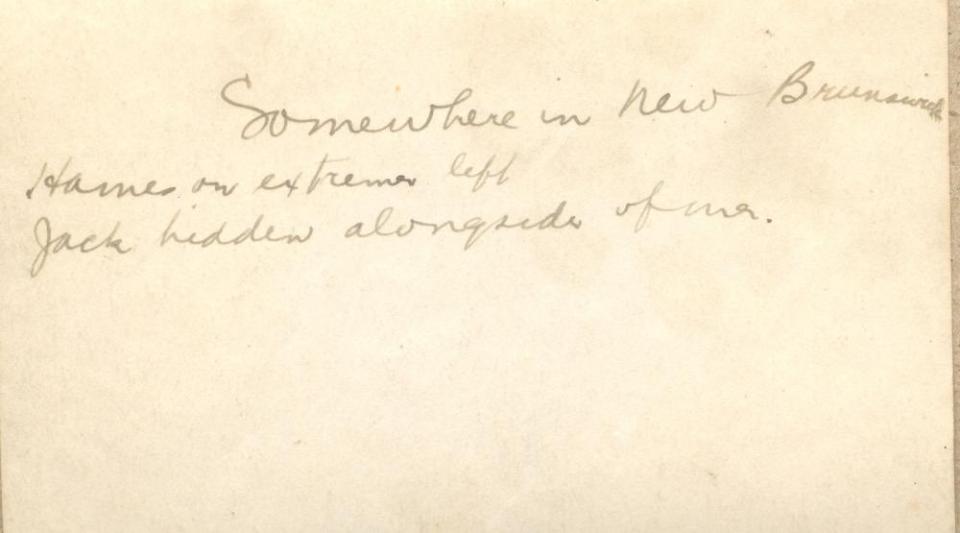 Somewhere in New Brunswick
Hames on extreme left
Jack hidden alongside of me.